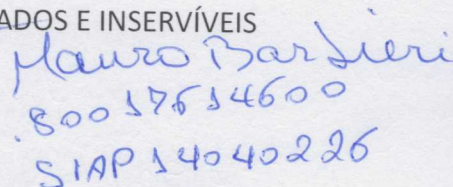 ADOS E INSERVÍVEIS
Mauro Barbieri
80017614600
SIAP 14040226